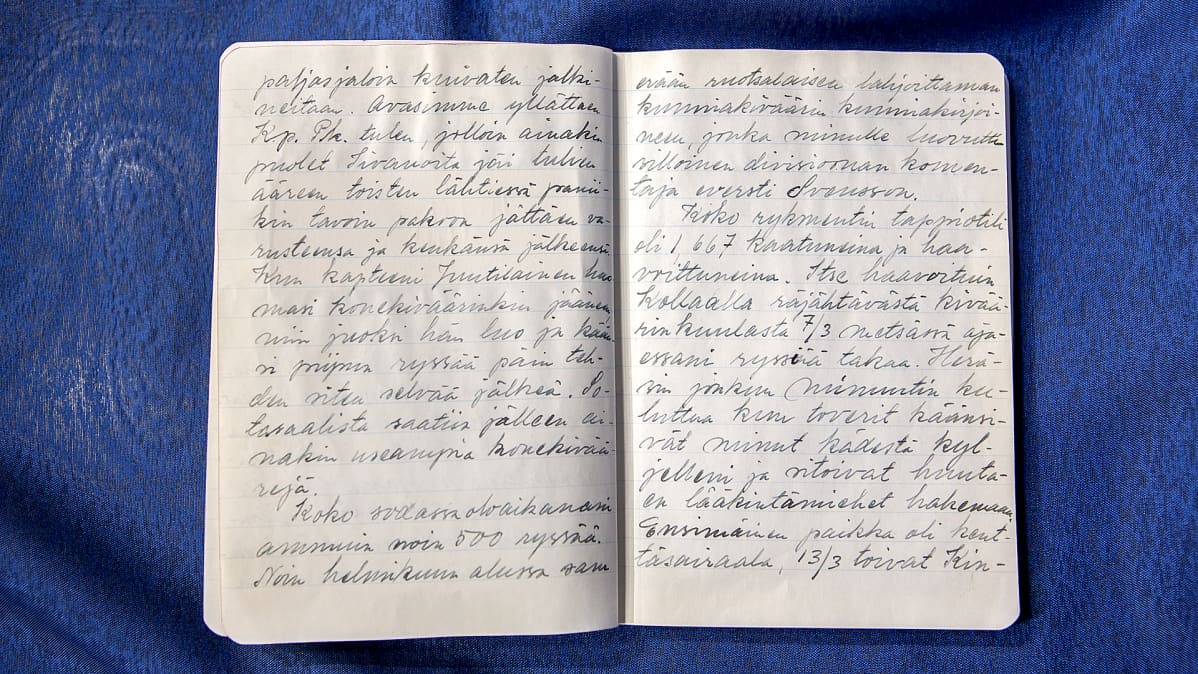 paljasjaloin kuivaten jalki-
neitaan. Avasimme yllättäen
Kp. Pk. tulen, jolloin ainakin
puolet Sivanoita jäi tulien
ääreen toisten lähtiessä panii-
kin tavoin pakoon jättäen va-
rusteensa ja kenkänsä jälkeensä.
Kun kapteeni Juutilainen huo-
masi konekiväärinkin jääneen,
niin juoksi hän luo ja kään-
si piipun ryssää päin teh-
den siten selvää jälkeä. So-
tasaalista saatiin jälleen ai-
nakin useampia konekivää-
rejä.
Koko sodassaoloaikanani
ammuin noin 500 ryssää.
Noin helmikuun alussa sain
erään ruotsalaisen lahjoittaman
kunniakiväärin kunniakirjoi-
neen, jonka minulle luovutti
silloinen divisioonan komen-
taja eversti Svensson.
Koko rykmentin tappiotili
oli 1,667 kaatuneina ja haa-
voittuneina. Itse haavoituin
Kollaalla räjähtävästä kivää-
rinkuulasta 7/3 metsässä aja-
essani ryssää takaa. Herä-
sin jonkun minuutin ku-
luttua kun toverit käänsi-
vät minut kädestä kyl-
jelleni ja sitoivat huuta-
en lääkintämiehet hakemaan.
Ensimäinen paikka oli kent-
täsairaala, 13/3 toivat Kin-